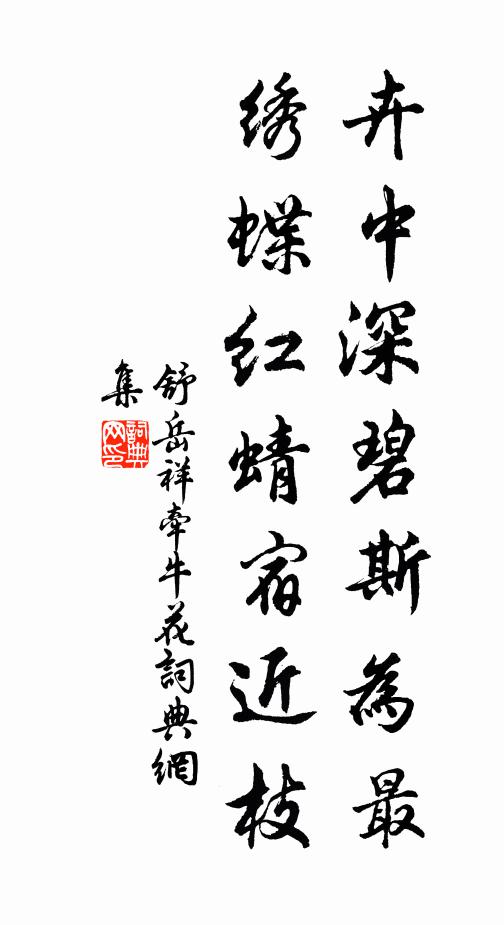 卉中深碧斯為最
绣蝶红蜻宿近枝
舒岳祥牽牛花詞典網
集
詞典网印